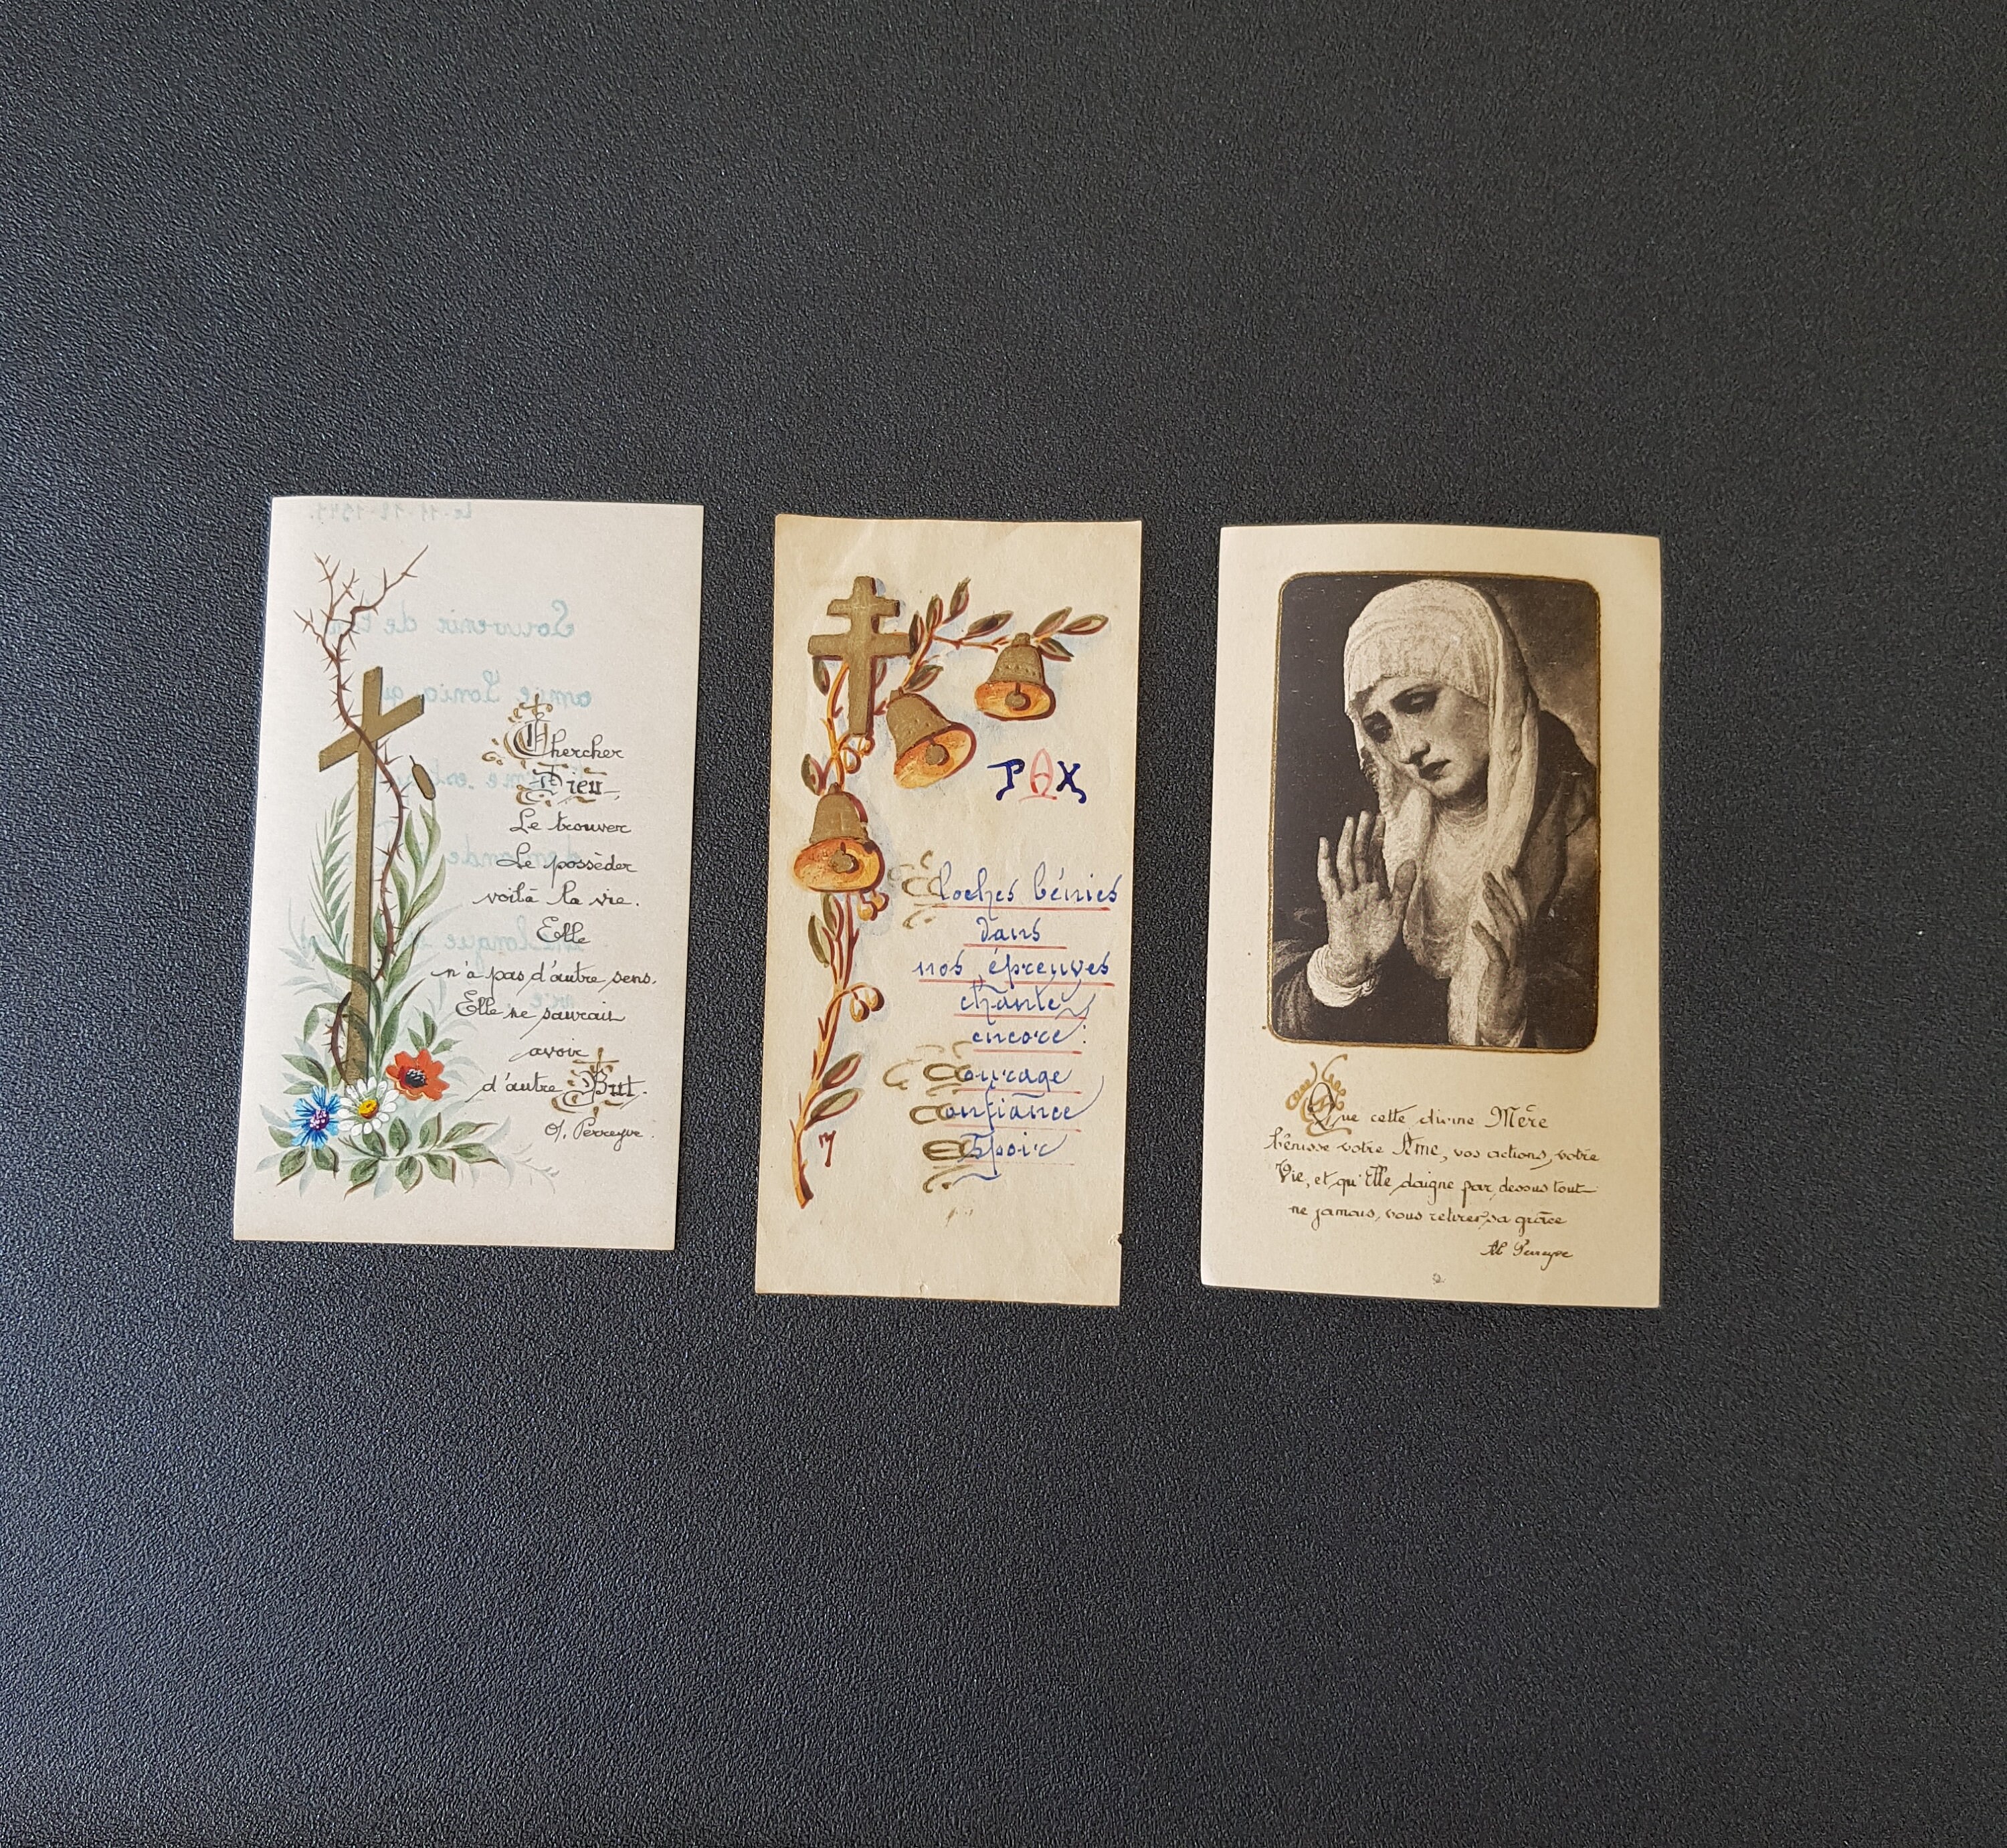 Le 11-12-1941.
Souvenir de
amie Sonia
demande
longue
vie
Chercher
Dieu
Le trouver
Le posséder
voilà la vie.
Elle
n'a pas d'autre sens.
Elle ne saurait
avoir
d'autre But.
H. Perreyve.
PAX
Cloches bénies
dans
nos épreuves
chantez
encore:
Courage
Confiance
Espoir
Que cette divine Mère
bénisse votre Âme, vos actions, votre
Vie, et qu'Elle daigne par dessus tout
ne jamais vous retirer sa grâce
Ab Perreyve